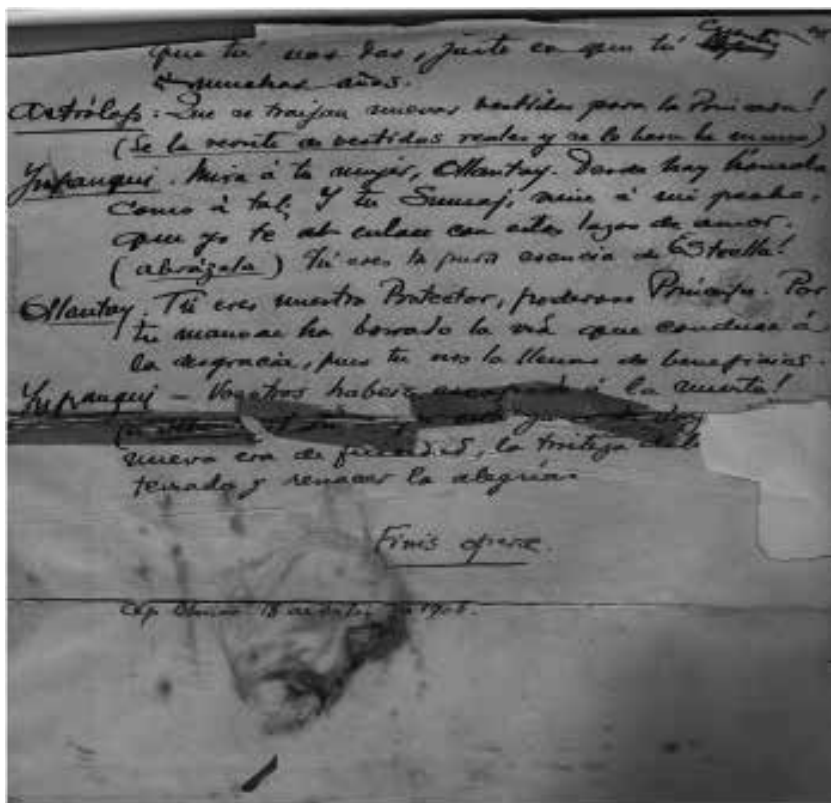 que tú nos das, justo es que tú
muchos años.
Astrólogo: Que se traigan nuevos vestidos para la Princesa!
(Se le reviste de vestidos reales y se le besa la mano)
Yupanqui. Mira á tu mujer, Ollantay. Desde hoy hónrala
como á tal; Y tu Sumaj, mine á mi pecho,
que yo te enlace con estos lazos de amor.
(abrázala) Tú eres la pura esencia de Estrella!
Ollantay. Tú eres nuestro Protector, poderoso Príncipe. Por
tu mano se ha borrado la vía que conduce á
la desgracia, pues tu nos la llenas de beneficios.
Yupanqui — Vosotros habeis á la muerte!
nueva era de, la tristeza
terrada y renacer la alegría.
Finis operæ.
18 de 1905.